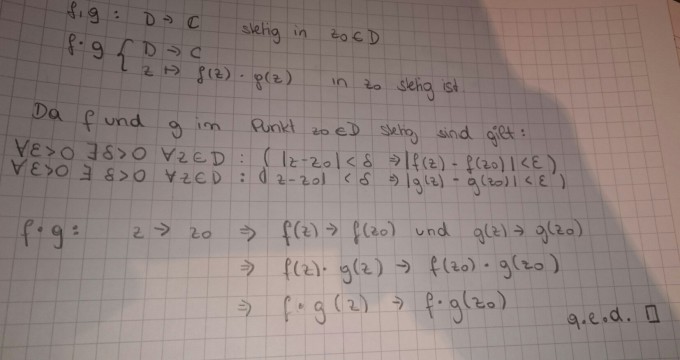 f,g : D → C stetig in z0 ∈ D
f·g { D → C
z ↦ f(z) · g(z) in z0 stetig ist
Da f und g im Punkt z0 ∈ D stetig sind gilt:
∀ε>0 ∃δ>0 ∀z∈D : ( |z-z0| < δ ⇒ |f(z) - f(z0)| < ε )
∀ε>0 ∃ δ>0 ∀z∈D : ( |z-z0| < δ ⇒ |g(z) - g(z0)| < ε )
f·g: z → z0 ⇒ f(z) → f(z0) und g(z) → g(z0)
⇒ f(z) · g(z) → f(z0) · g(z0)
⇒ f·g(z) → f·g(z0)
q.e.d. □